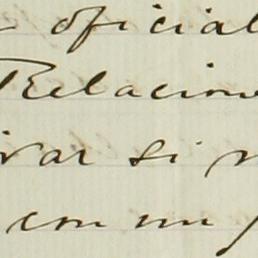 oficial
Relacion
rar si
con un